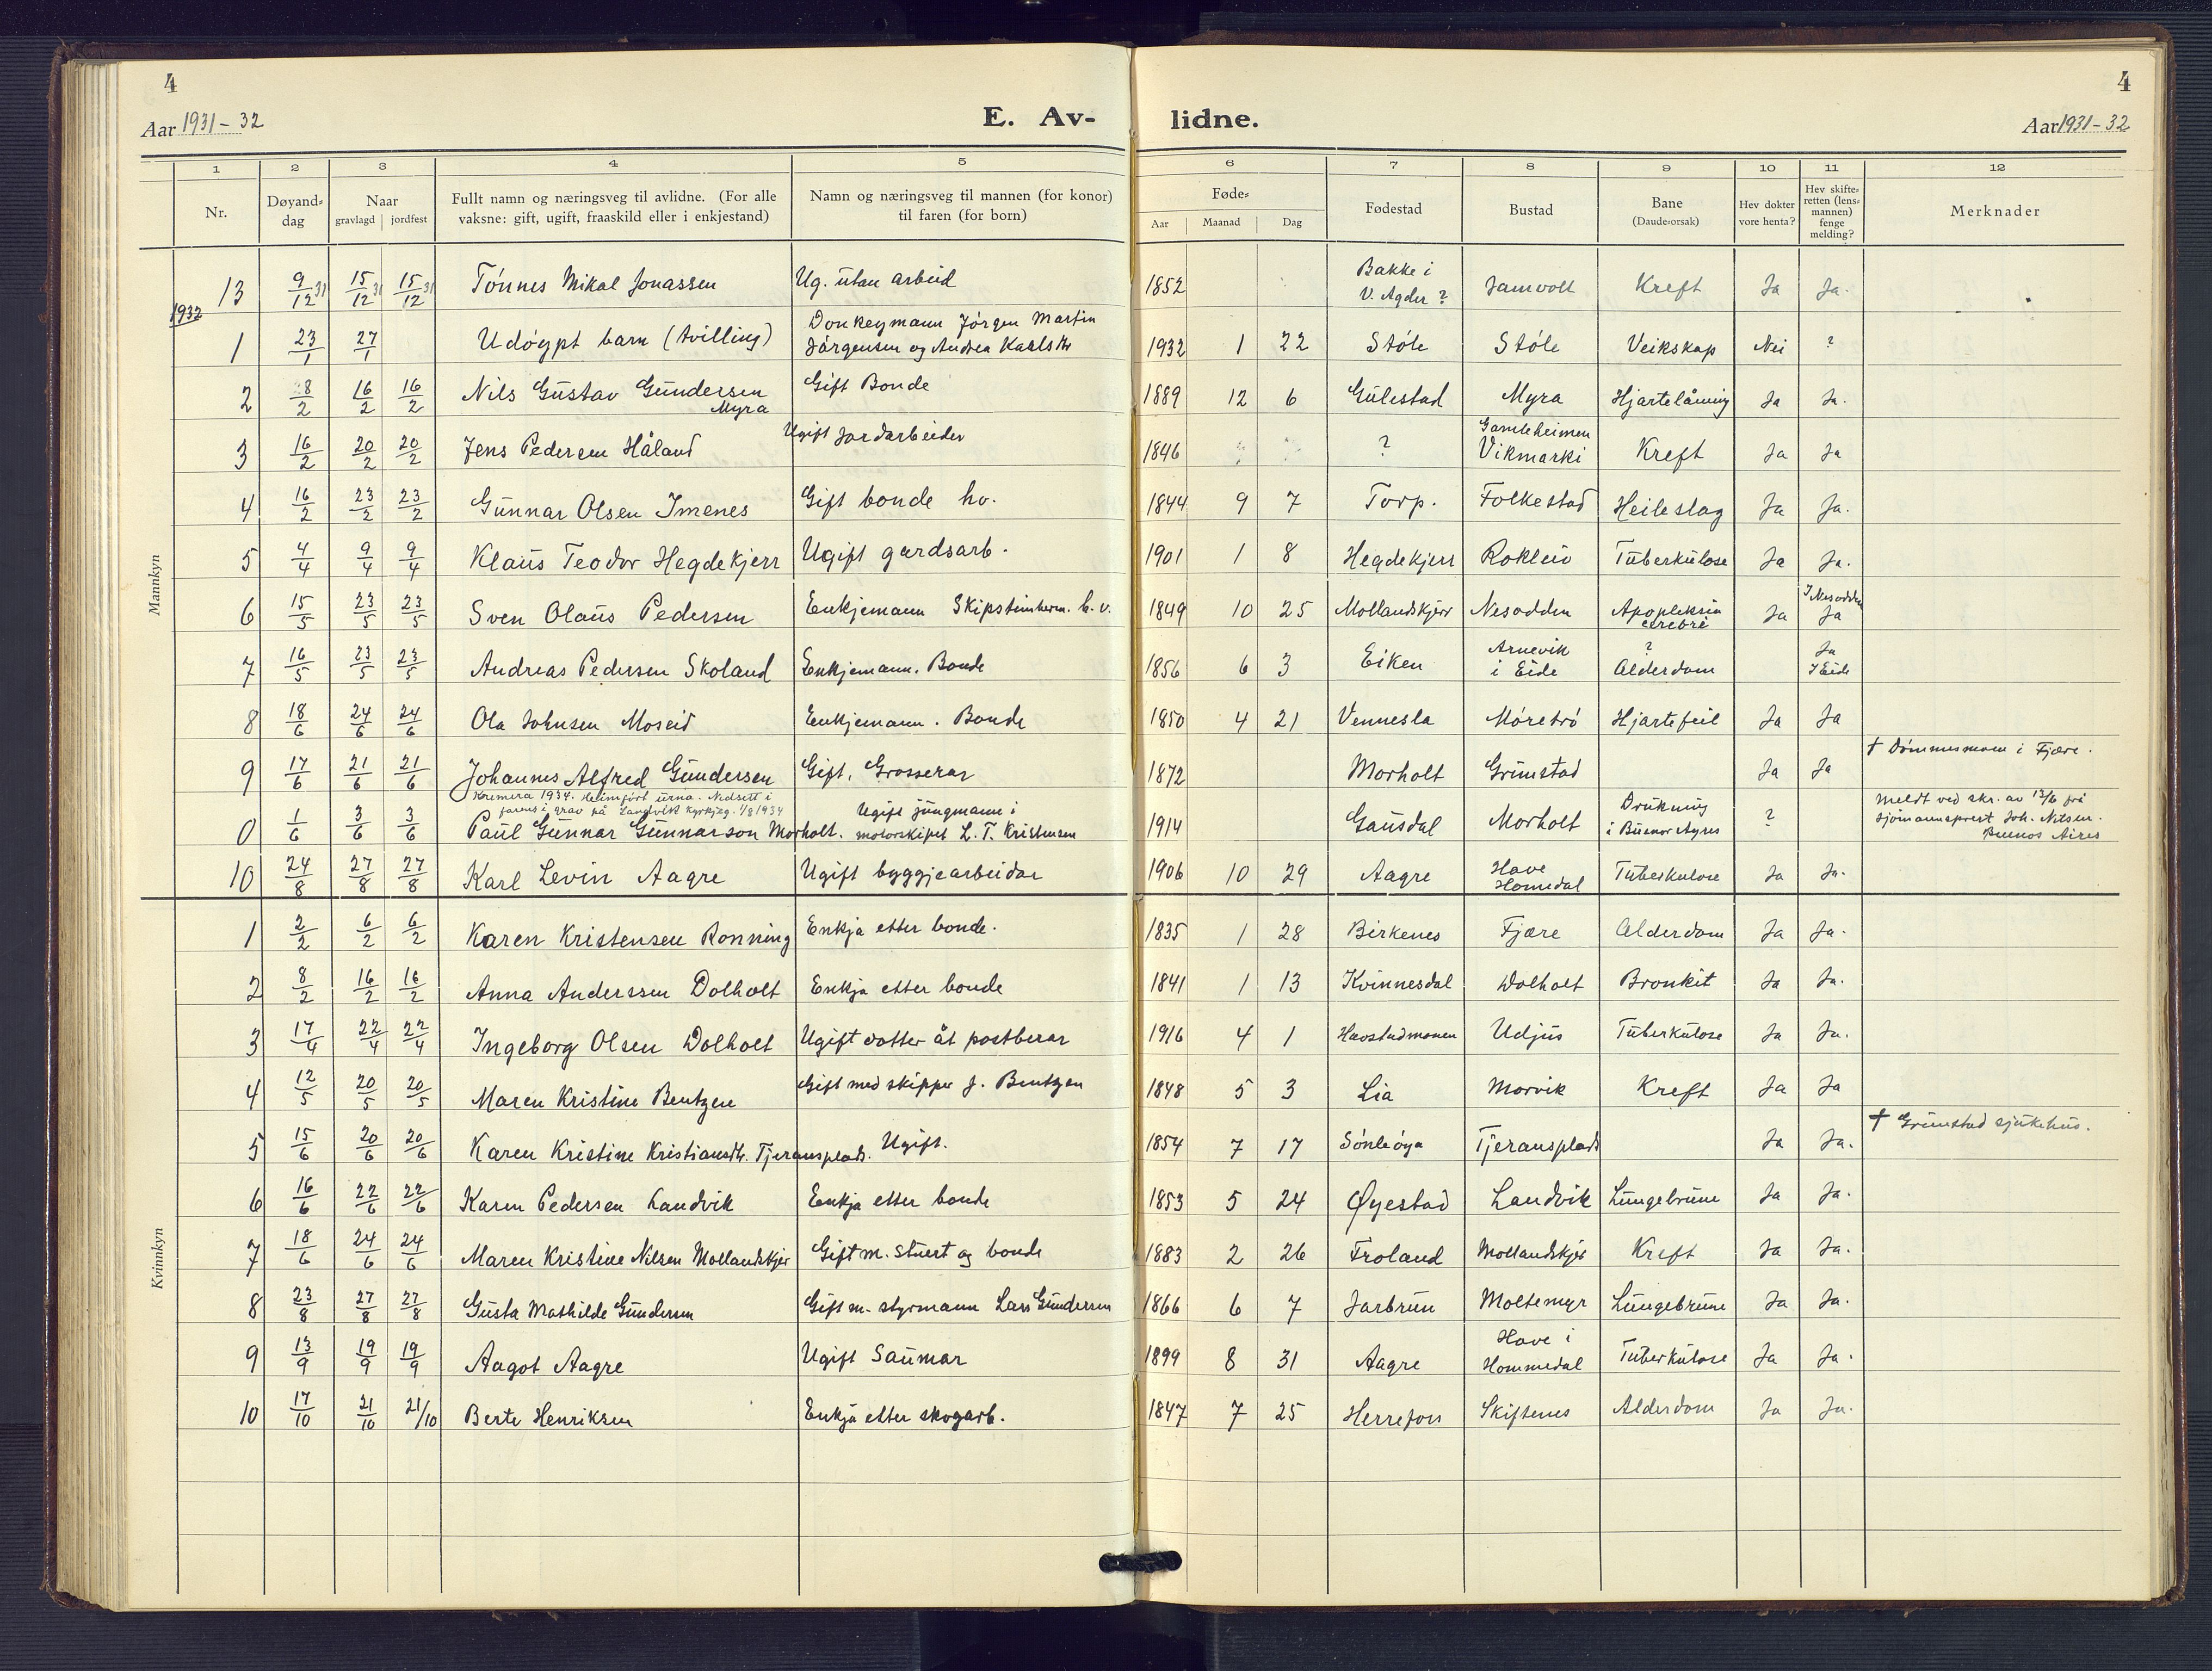 4
4
Aar 1931-32
E. Av-
lidne.
Aar 1931-32
1 2 3 4 5 6 7 8 9 10 11 12
Nr.
Døyand-
dag
Naar
gravlagd jordfest
Fullt namn og næringsveg til avlidne. (For alle
vaksne: gift, ugift, fraaskild eller i enkjestand)
Namn og næringsveg til mannen (for konor)
til faren (for born)
Føde-
Aar Maanad Dag
Fødestad
Bustad
Bane
(Daudeorsak)
Hev dokter
vore henta?
Hev skifte-
retten (lens-
mannen)
fenge
melding?
Merknader
Mannkyn
13 9/12 31 15/12 31 15/12 31 Tönnes Mikal Jonassen Ug. utan arbeid 1852 Bakke i
V. Agder ? Jamvolt Kreft Ja Ja.
1932
1 23/1 27/1 Udöypt barn (tvilling) Donkeymann Jörgen Martin
Jörgensen og Andrea Karlsdtr 1932 1 22 Støle Støle Veikskap Nei ?
2 8/2 16/2 16/2 Nils Gustav Gundersen
Myra Gift Bonde 1889 12 6 Gulestad Myra Hjartelåming Ja Ja.
3 16/2 20/2 20/2 Jens Pedersen Håland Ugift Jordarbeider 1846 ? Gamleheimen
Vikmarki Kreft Ja Ja
4 16/2 23/2 23/2 Gunnar Olsen Imenes Gift bonde ho. 1844 9 7 Torp. Folkestad Heileslag Ja Ja.
5 4/4 9/4 9/4 Klaus Teodor Hegdekjerr Ugift gardsarb. 1901 1 8 Hegdekjerr Rokleiv Tuberkulose Ja Ja.
6 15/5 23/5 23/5 Sven Olaus Pedersen Enkjemann Skipstimherm. h. v. 1849 10 25 Mollandskjerr Nesodden Apopleksia
cerebri Ja I Nesodden
Ja
7 16/5 23/5 23/5 Andreas Pedersen Skoland Enkjemann. Bonde 1856 6 3 Eiken Arnevik
i Eide ?
Alderdom Ja
I Eide
8 18/6 24/6 24/6 Ola Johnsen Moseid Enkjemann. Bonde 1850 4 21 Vennesla Møretrø Hjartefeil Ja Ja
9 17/6 21/6 21/6 Johannes Alfred Gundersen Gift, Grosserar 1872 Morholt Grimstad Ja Ja † Dømmesmoen i Fjære.
Kremera 1934. Heimført urna. Nedsett i
farens grav på Landvik kyrkjeg. 1/8 1934
0 1/6 3/6 3/6 Paul Gunnar Gunnarson Morholt. Ugift jungmann i
motorskipet L. T. Kristensen 1914 Gausdal Morholt Drukning
i Buenor Ayres ? Meldt ved skr. av 13/6 frå
sjømannsprest Joh. Nilsen.
Buenos Aires
10 24/8 27/8 27/8 Karl Levin Aagre Ugift byggjearbeidar 1906 10 29 Aagre Hove
Homedal Tuberkulose Ja Ja.
Kvinnkyn
1 2/2 6/2 6/2 Karen Kristensen Rønning Enkja etter bonde. 1835 1 28 Birkenes Fjære Alderdom Ja Ja.
2 8/2 16/2 16/2 Anna Anderssen Dolholt Enkja etter bonde 1841 1 13 Kvinnesdal Dolholt Bronkit Ja Ja.
3 17/4 22/4 22/4 Ingeborg Olsen Dolholt Ugift dotter åt postberar 1916 4 1 Havstadmonen Udjus Tuberkulose Ja Ja.
4 12/5 20/5 20/5 Maren Kristine Bentzen Gift med skipper J. Bentzen 1848 5 3 Lia Morvik Kreft Ja Ja
5 15/6 20/6 20/6 Karen Kristine Kristiansdtr. Tjeransplads. Ugift. 1854 7 17 Sønleøya Tjeransplads Ja Ja. † Grimstad sjukehus.
6 16/6 22/6 22/6 Karen Pedersen Landvik Enkja etter bonde 1853 5 24 Øyestad Landvik Lungebrune Ja Ja.
7 18/6 24/6 24/6 Maren Kristine Nilsen Mollandskjer Gift m. stuert og bonde 1883 2 26 Froland Mollandskjer Kreft Ja Ja.
8 23/8 27/8 27/8 Gusta Mathilde Gundersen Gift m. styrmann Lars Gundersen 1866 6 7 Jarbrun Moltemyr Lungebrune Ja Ja.
9 13/9 19/9 19/9 Aagot Aagre Ugift Saumar 1899 8 31 Aagre Hove i
Hommedal Tuberkulose Ja Ja.
10 17/10 21/10 21/10 Berte Henriksen Enkja etter skogarb. 1847 7 25 Herrefoss Skiftenes Alderdom Ja Ja.